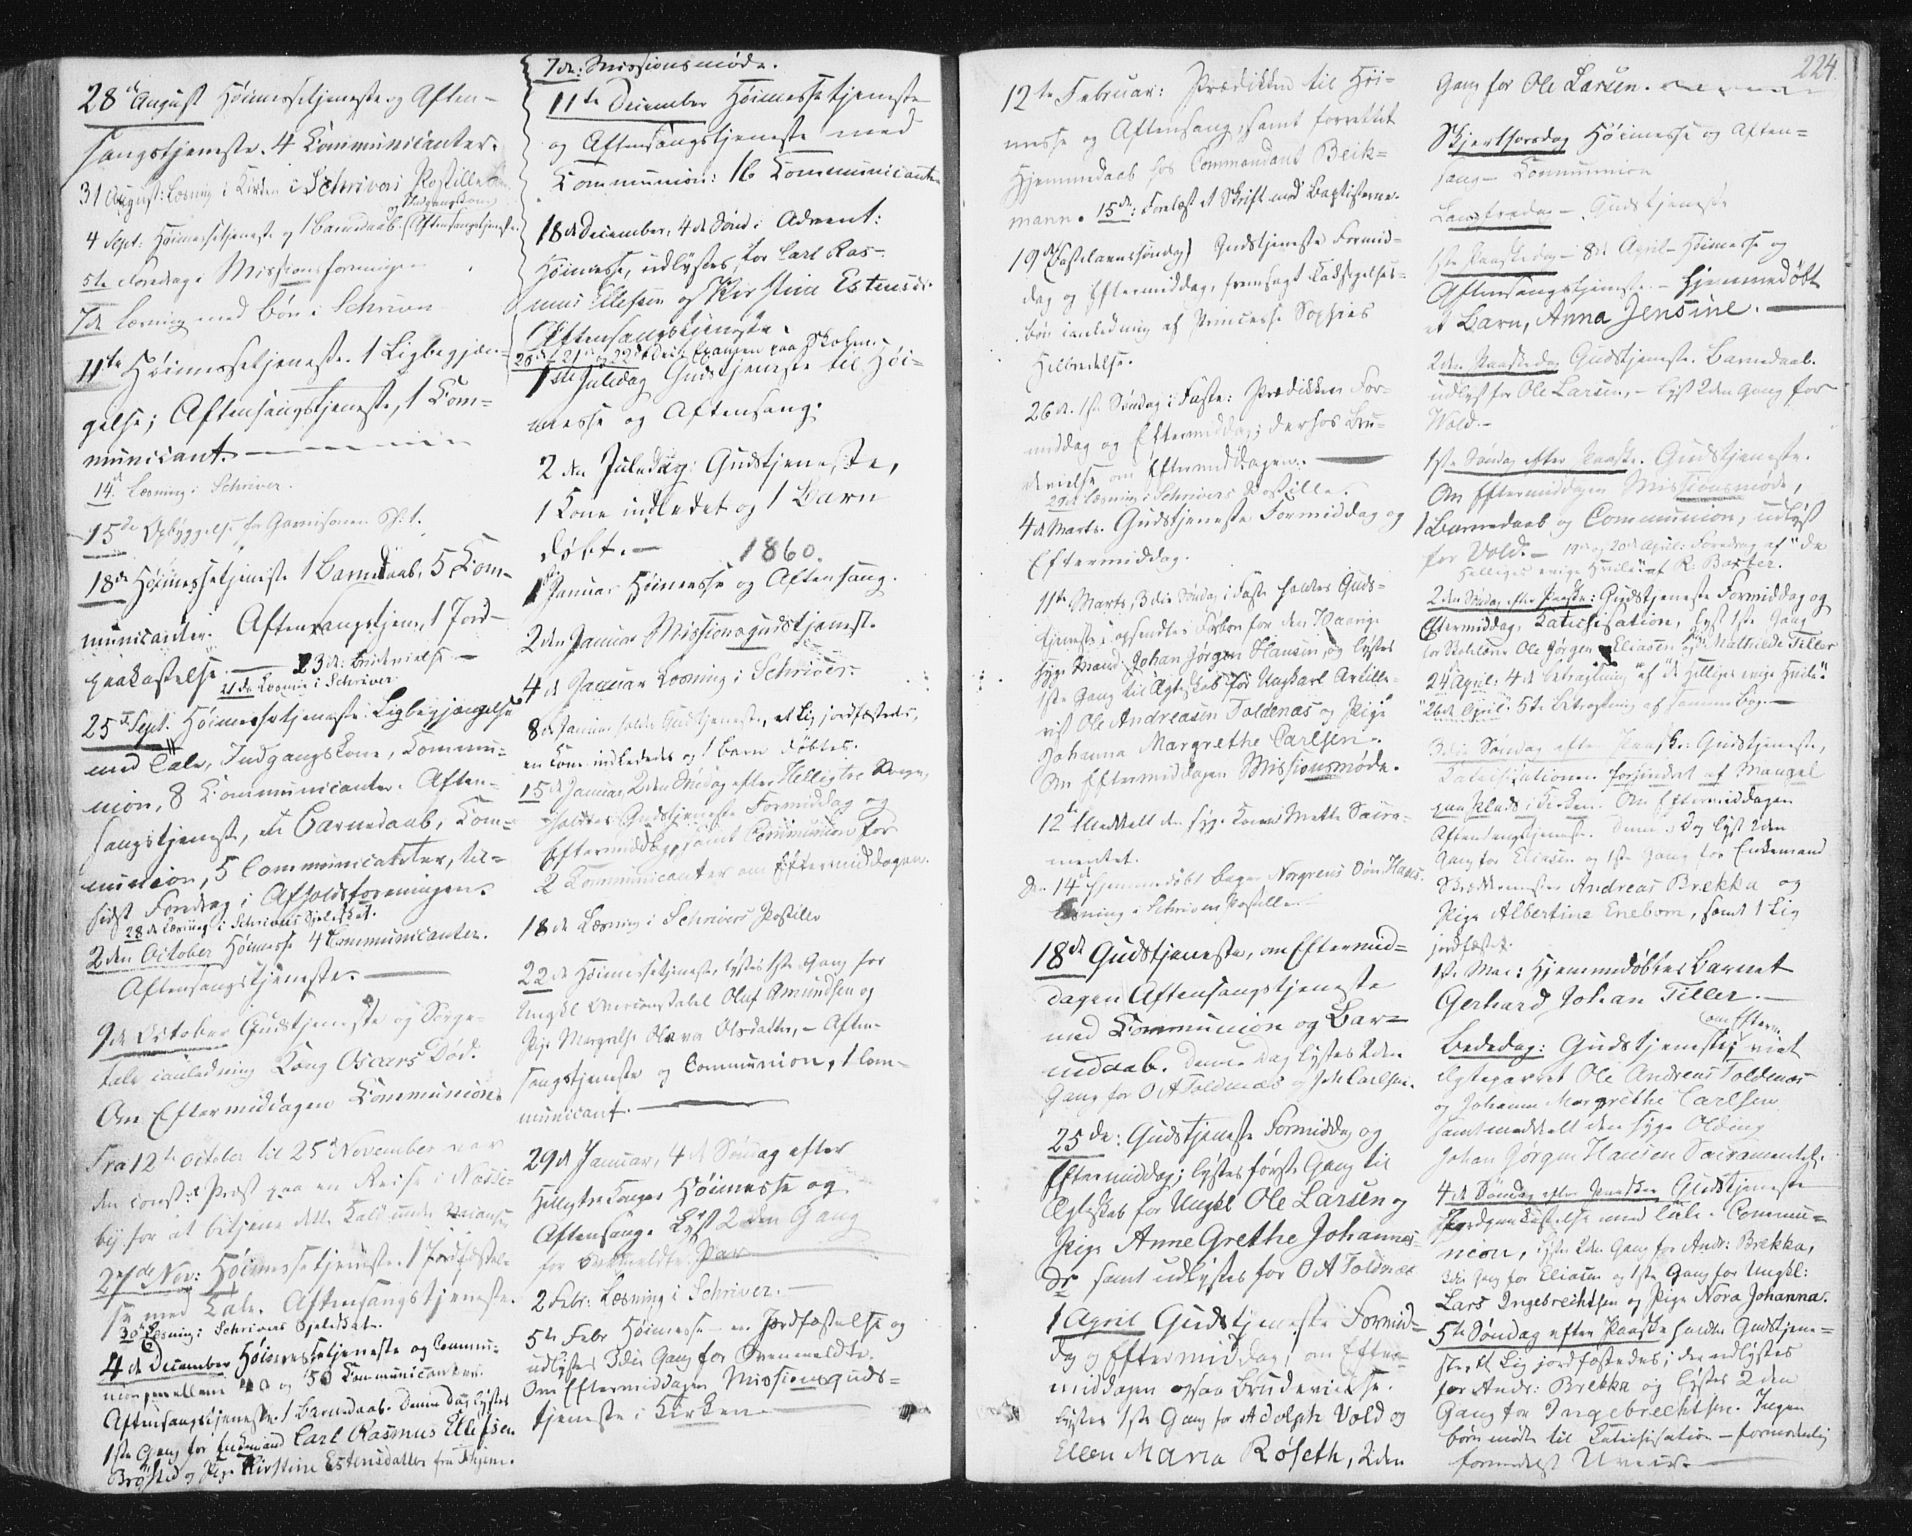 28de August Høimessetjeneste og Aften-
sangstjeneste. 4 Communicanter.
31 August: Læsning i Kirken i Schrivers Postille
4 Sept: Høimessetjeneste og 1 Barnedaab. Aftensangstjeneste.
5te Foredrag i Missionsforeningen
7de Læsning med Bøn i Schriver
11te Høimessetjeneste. 1 Ligbegjæn-
gelse; Aftensangstjeneste, 1 Com-
municant.
14de Læsning i Schriver.
15de Opbyggelse for Garnisonen
18de Høimessetjeneste 1 Barnedaab, 5 Com-
municanter. Aftensangstjen, 1 Jord-
paakastelse. — 23de: Brudevielse. —
21de Læsning i Schriver
25de Sept. Høimessetjeneste. Ligbegjængelse
med Tale, Indgangskone, Commu-
nion, 8 Communicanter. Aften-
sangstjeneste, et Barnedaab, Com-
munion, 5 Communicanter, til-
sidst Foredrag i Afholdsforeningen.
28de Læsning i Schrivers Sjeleskat.
2den October Høimesse 4 Communicanter.
Aftensangstjeneste. —
9de October Gudstjeneste og Sørge-
tale i anledning Kong Oscars Død.
Om Eftermiddagen Communion.
Fra 12te October til 25de November var
den const: Præst paa en Reise i
by for at betjene dette Kald under
27de Nov: Høimessetjeneste. 1 Jordfæstel-
se med Tale. Aftensangstjeneste.
30te Læsning i Schrivers Sjeleskat.
4de December Høimessetjeneste og Commu-
nion og 50 Communicanter.
Aftensangstjeneste. 1 Barnedaab. Denne Dag lystes
1ste Gang for Enkemand Carl Rasmus Ellefsen
og Pige Kirstine Estensdatter fra
7de: Missionsmøde.
11te December Høimessetjeneste
og Aftensangstjeneste med
Communion: 16 Communicanter
18de December, 4de Sønd: i Advent:
Høimesse, udlystes for Carl Ras-
mus Ellefsen og Kirstine Estensdr
Aftensangstjeneste.
20de, 21de og 22de Examen paa Skolen.
1ste Juledag Gudstjeneste til Høi-
messe og Aftensang.
2den Juledag: Gudstjeneste,
1 Kone indledet og 1 Barn
døbt. —
1860.
1 Januar Høimesse og Aftensang.
2den Januar Missionsgudstjeneste
4de Januar Læsning i Schriver.
8de Januar holdt Gudstjeneste, et Lig jordfæstedes,
en Kone indlededes og 1 Barn døbtes.
15de Januar, 2den Søndag efter Helligtre Konger,
holdtes Gudstjeneste Formiddag og
Eftermiddag, samt Communion for
2 Communicanter om Eftermiddagen.
18de Læsning i Schrivers Postille
22de Høimessetjeneste, lystes 1ste Gang for
Ungkl Overconstabel Oluf Amundsen og
Pige Olsdatter, — Aften-
sangstjeneste og Communion, 1 Com-
municant. —
29de Januar, 4de Søndag efter
Helligtre Konger Høimesse og
Aftensang. Lyst 2den Gang
for Ovenmeldte Par
2 Febr: Læsning i Schriver. —
5te Febr Høimesse — en Jordfæstelse og
udlystes 3die Gang for Ovenmeldte.
Om Eftermiddagen Missionsguds-
tjeneste i Kirken.
224.
12te Februar: Prædiken til Høi-
messe og Aftensang, samt forrettet
Hjemmedaab hos Commandant Beik-
mann. 15de: Forelæst et Skrift mod Baptisterne.
19de (Fastelavnssøndag) Gudstjeneste Formid-
dag og Eftermiddag, fremsagt Taksigelses-
bøn i anledning af Princesse Sophies
Helbredelse.
26de. 1ste Søndag i Faste: Prædiken For-
middag og Eftermiddag; derhos Bru-
devielse om Eftermiddagen. —
29de Læsning i Schrivers Postille.
4de Marts. Gudstjeneste Formiddag og
Eftermiddag.
11te Marts, 3die Søndag i Faste holdtes Guds-
tjeneste; opsendtes Forbøn for den
syge Mand Johan Jørgen Hansen, og lystes
1ste Gang til Ægteskab for Ungkarl Artille-
rist Ole Andreasen Toldenæs og Pige
Johanna Margrethe Carlsen.
Om Eftermiddagen Missionsmøde.
12te Meddelt den syge Kone Mette Sacra-
mentet.
Den 14de hjemmedøbt Bager Norgrens Søn Hans.
Læsning i Schrivers Postille.
18de Gudstjeneste, om Eftermid-
dagen Aftensangstjeneste
med Communion og Bar-
nedaab. Denne Dag lystes 2den
Gang for O A Toldnæs og Joh: Carlsen.
25de: Gudstjeneste Formiddag og
Eftermiddag; lystes første Gang til
Ægteskab for Ungkl Ole Larsen og
Pige Anne Grethe Johannes-
dr samt udlystes for O A Toldnæs
1 April Gudstjeneste Formid-
dag og Eftermiddag; om Efter-
middagen ogsaa Brudevielse.
Lystes 1ste Gang for Adolph Vold og
Ellen Maria Røseth, 2den
Gang for Ole Larsen.
Skjertorsdag Høimesse og Aften-
sang — Communion
Langfredag — Gudstjeneste
1ste Paaskedag — 8de April — Høimesse og
Aftensangstjeneste. — Hjemmedøbt
et Barn, Anna Jensine. —
2den Paaskedag Gudstjeneste. Barnedaab.
udlyst for Ole Larsen, — lyst 2den Gang for
Vold. —
1ste Søndag efter Paaske. Gudstjeneste.
Om Eftermiddagen Missionsmøde,
1 Barnedaab og Communion, udlyst
for Vold. — 19de og 20de April: Foredrag af "de
Helliges evige Hvile" af R: Baxter.
2den Søndag efter Paaske: Gudstjeneste Formiddag og
Eftermiddag, Katechisation, lyst 1ste Gang
for Ole Jørgen Eliasen og Pige Mathilde Tiller
24 April: 4de Betragtning af "de Helliges evige Hvile".
26de April 5te Betragtning af samme Bog. —
3die Søndag efter Paaske: Gudstjeneste,
Catechisationen forhindret af Mangel
paa Plads i Kirken. Om Eftermiddagen
Aftensangstjeneste. Denne Dag lyst 2den
Gang for Eliasen og 1ste Gang for Enkemand
Andreas Brekka og
Pige Albertine Eneborn, samt 1 Lig
jordfæstet.
1ste Mai: Hjemmedøbtes Barnet
Gerhard Johan Tiller. —
Bededag: Gudstjeneste; om Efterm. viet
Ægteparret Ole Andreas Toldenæs
og Johanna Margrethe Carlsen
samt meddelt den syge Olding
Johan Jørgen Hansen Sacramentet.
4de Søndag efter Paaske Gudstjeneste
Jordpaakastelse med Tale. Commu-
nion, lyste 2den Gang for Andr: Brekka,
3die Gang for Eliasen og 1ste Gang for Ungkl:
Lars Ingebrechtsen og Pige Nora Johanna.
5te Søndag efter Paaske holdtes Gudstjene-
ste, et Lig jordfæstedes; der udlystes
for Andr: Brekka og lystes 2den
Gang for Ingebrechtsen. Ingen
Børn mødte til Catechisation — formodentlig
formedelst Uveir. —